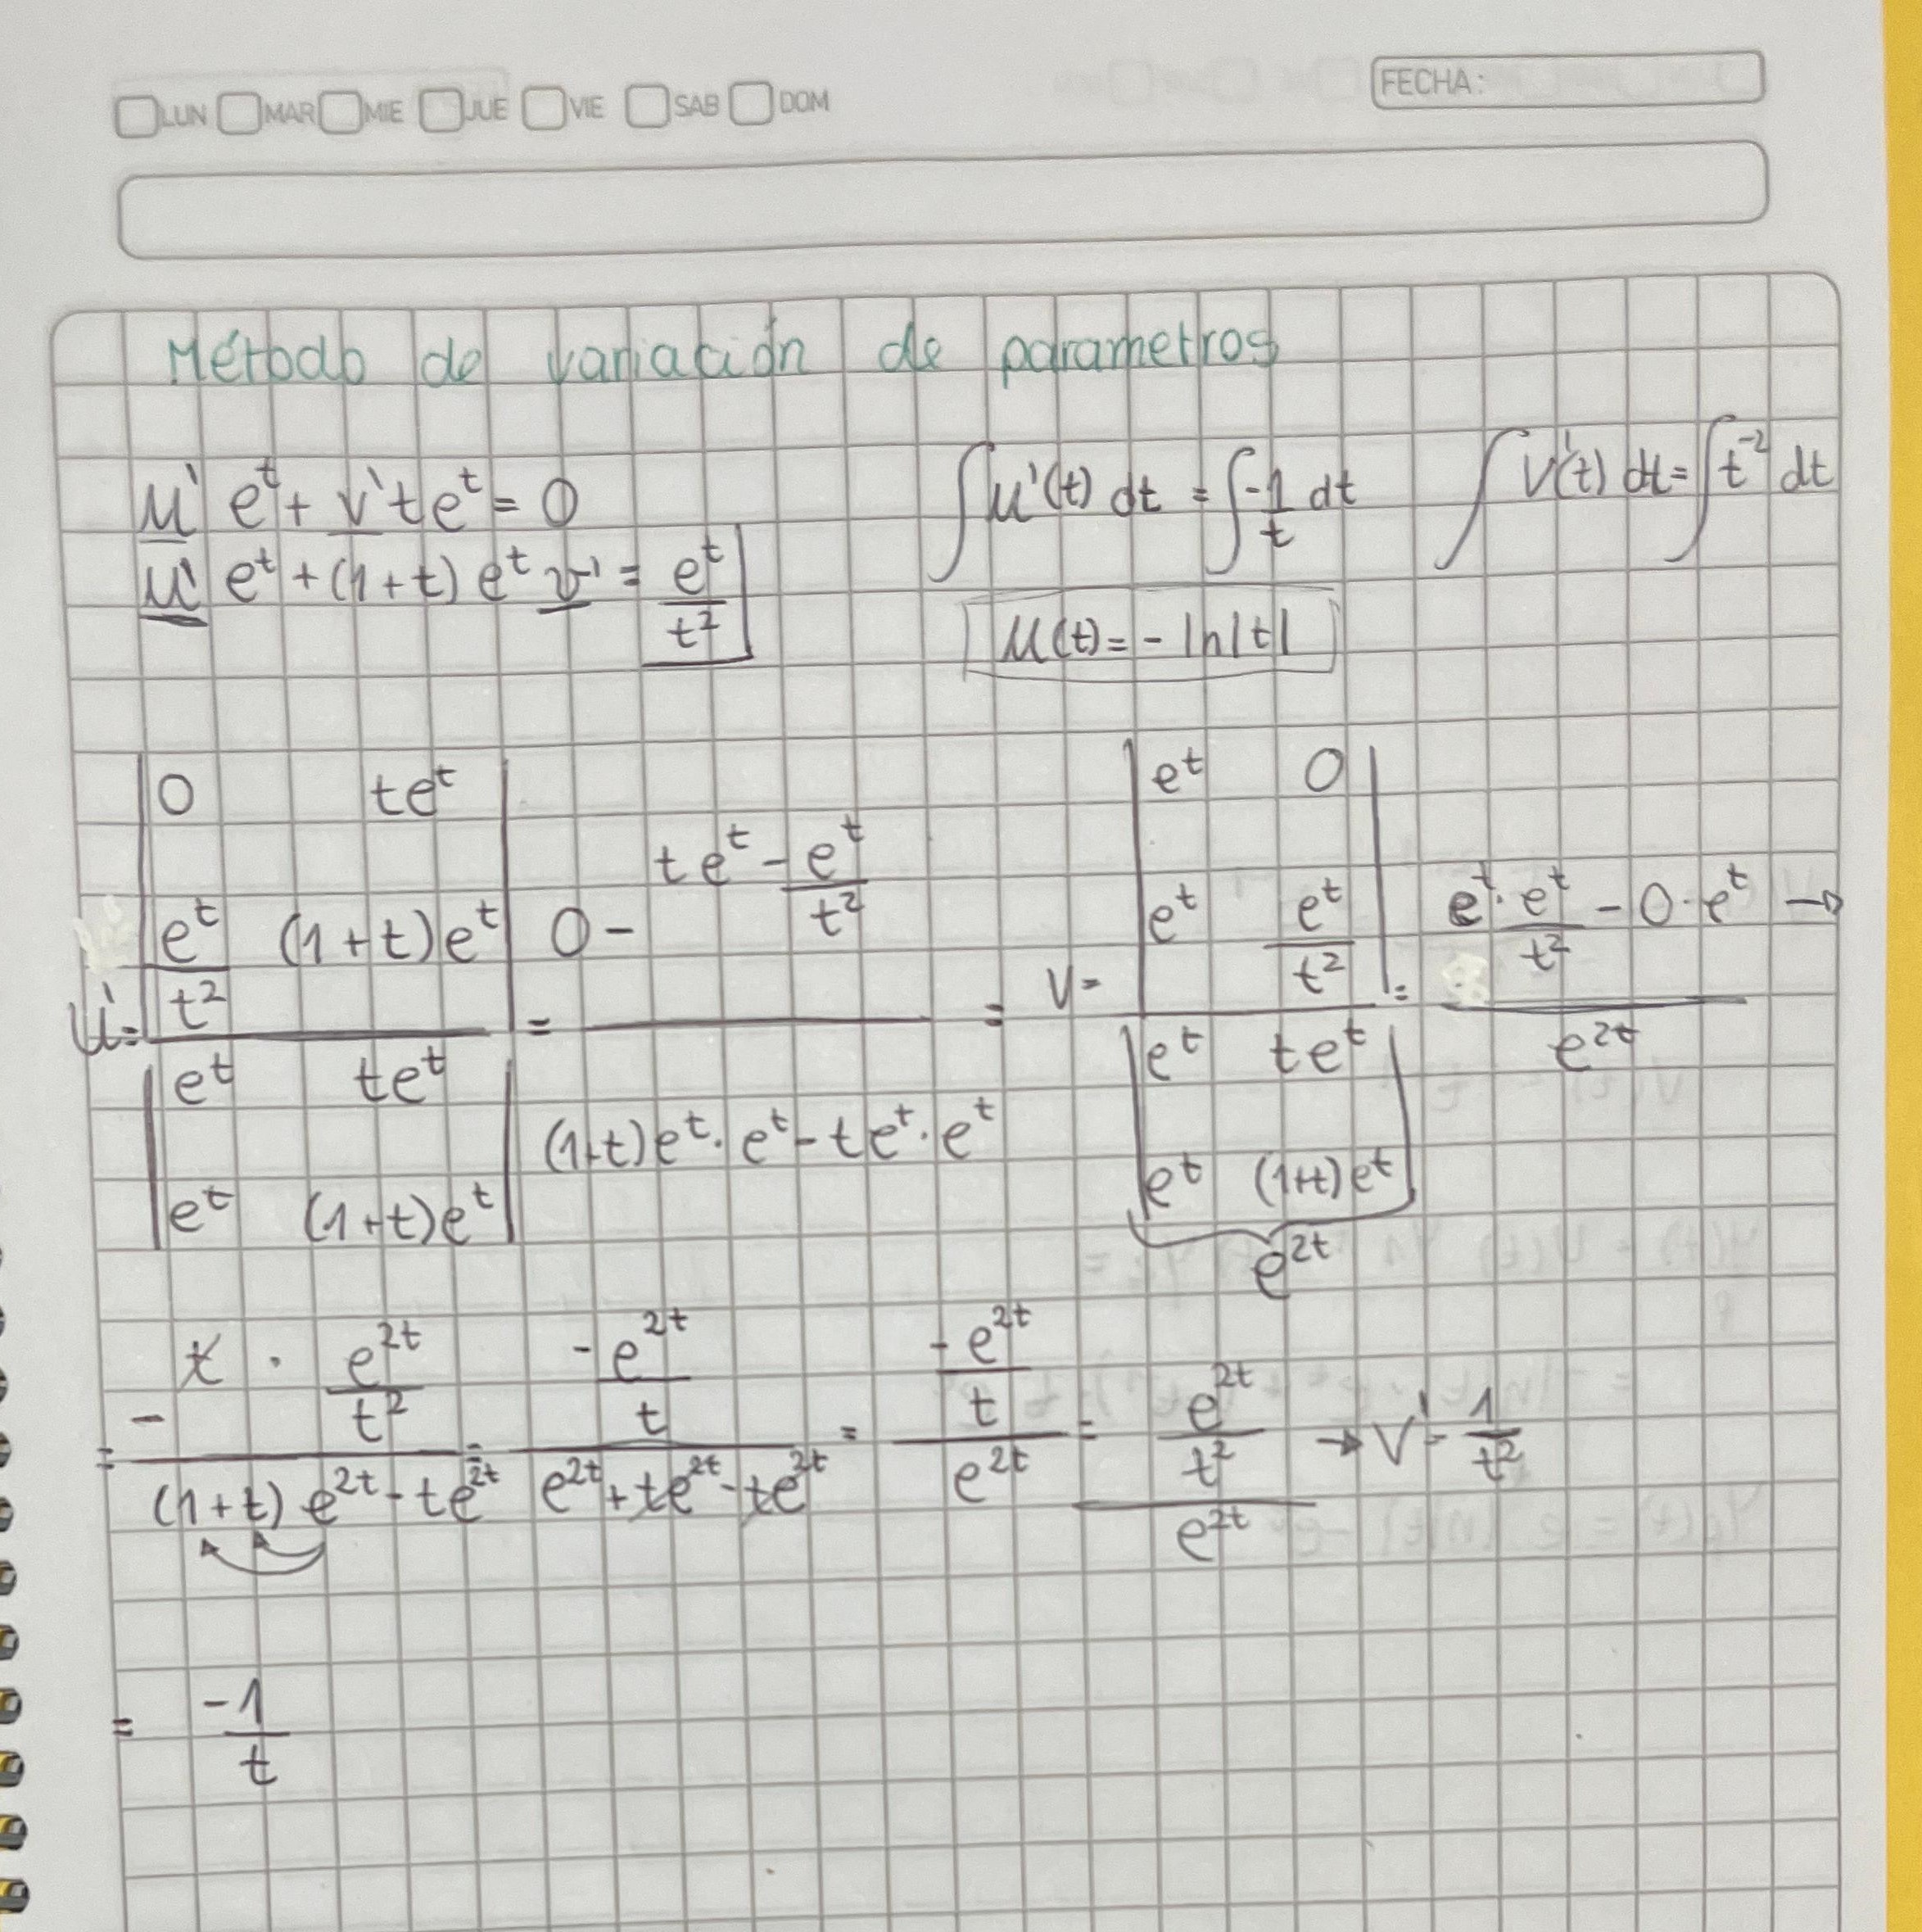 LUN MAR MIE JUE VIE SAB DOM FECHA:
Método de variación de parametros
μ' e^t + v' t e^t = 0
μ' e^t + (1+t) e^t v' = e^t / t²
∫ μ'(t) dt = ∫ -1/t dt
μ(t) = - ln|t|
∫ v'(t) dt = ∫ t^-2 dt
u' = |0 te^t ; e^t/t² (1+t)e^t| / |e^t te^t ; e^t (1+t)e^t| = (0 - te^t - e^t/t²) / ((1+t)e^t · e^t - te^t · e^t) =
= (- t · e^2t/t²) / ((1+t) e^2t - te^2t) = (-e^2t/t) / (e^2t + te^2t - te^2t) = (-e^2t/t) / e^2t
= -1/t
v = |e^t 0 ; e^t e^t/t²| / |e^t te^t ; e^t (1+t)e^t| = (e^t · e^t/t² - 0 · e^t) / e^2t →
e^2t
= (e^2t/t²) / e^2t → v' = 1/t²